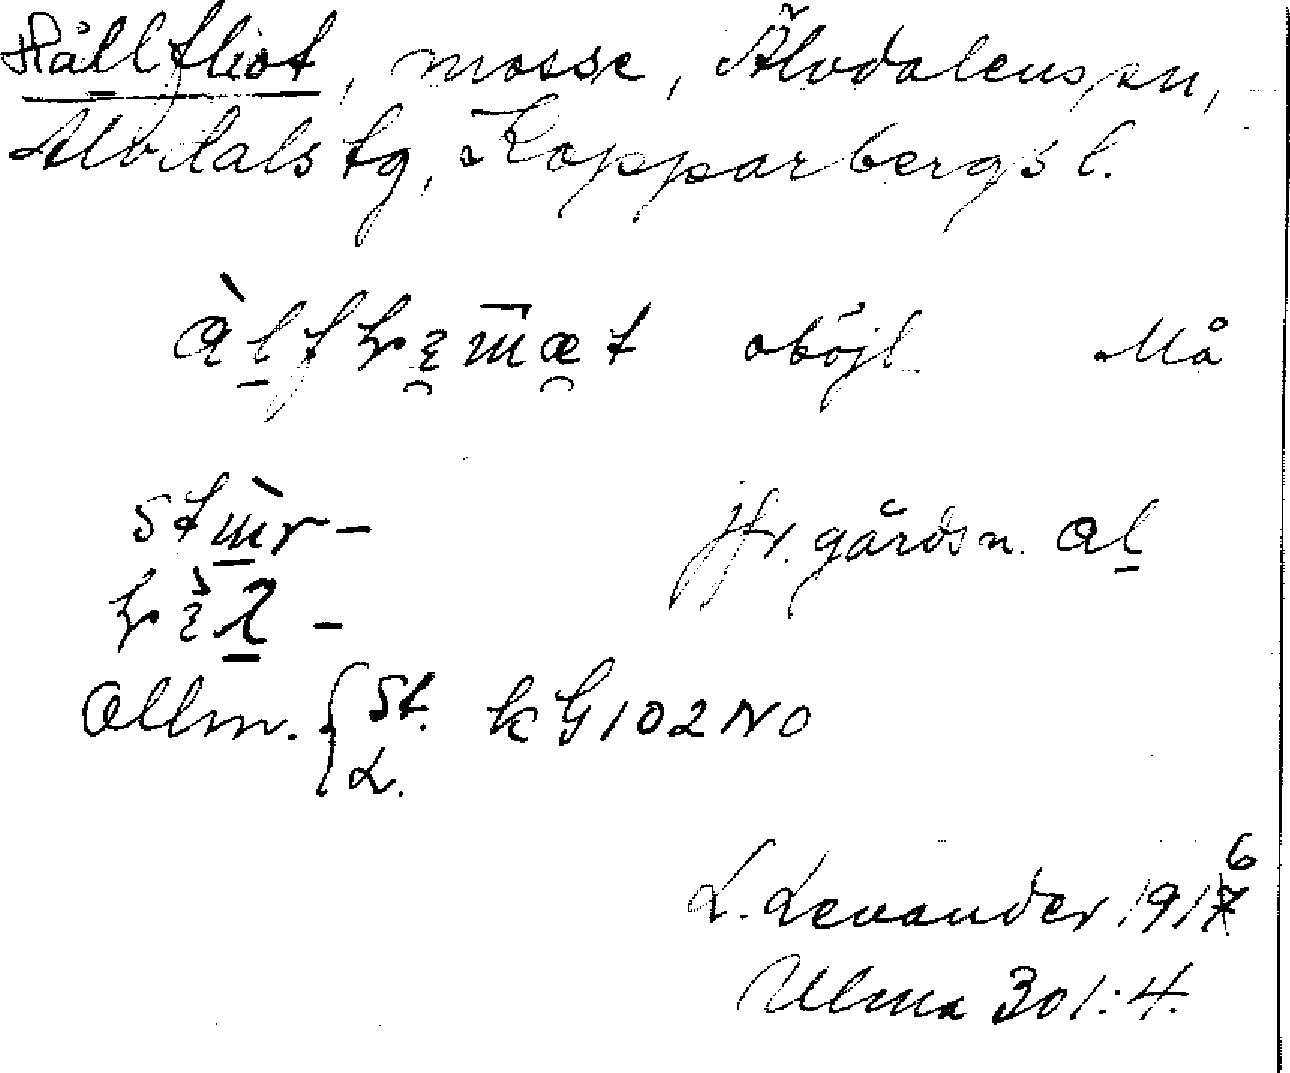 Hållfliot, mosse, Älvdalens sn,
Älvdals tg, Kopparbergs l.
oböjl. Må
jfr. gårdsn. al
Allm. { St. kG 102 NO
L.
L. Levander 1916
Ulma 301:4.